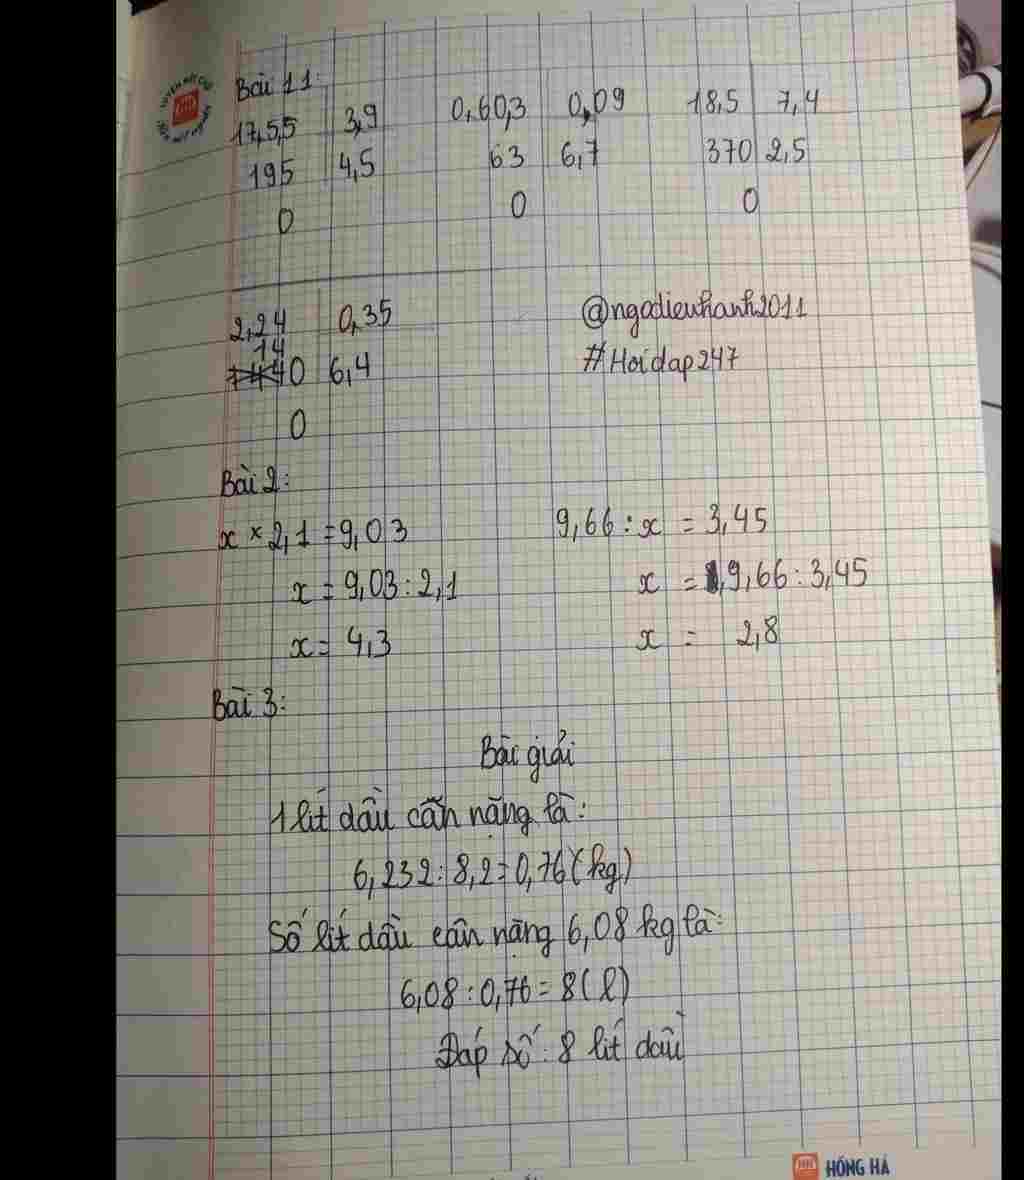 Bài 11:
17,5,5 3,9 0,60,3 0,09 18,5 7,4
195 4,5 63 6,7 370 2,5
0 0 0
2,24 0,35 @ngodieuhanh2011
14
40 6,4 #Hoidap247
0
Bài 2:
x × 2,1 = 9,03 9,66 : x = 3,45
x = 9,03 : 2,1 x = 9,66 : 3,45
x = 4,3 x = 2,8
Bài 3:
Bài giải
1 lít dầu cân nặng là:
6,232 : 8,2 = 0,76 (kg)
Số lít dầu cân nặng 6,08 kg là:
6,08 : 0,76 = 8 (l)
Đáp số : 8 lít dầu
HỒNG HÀ